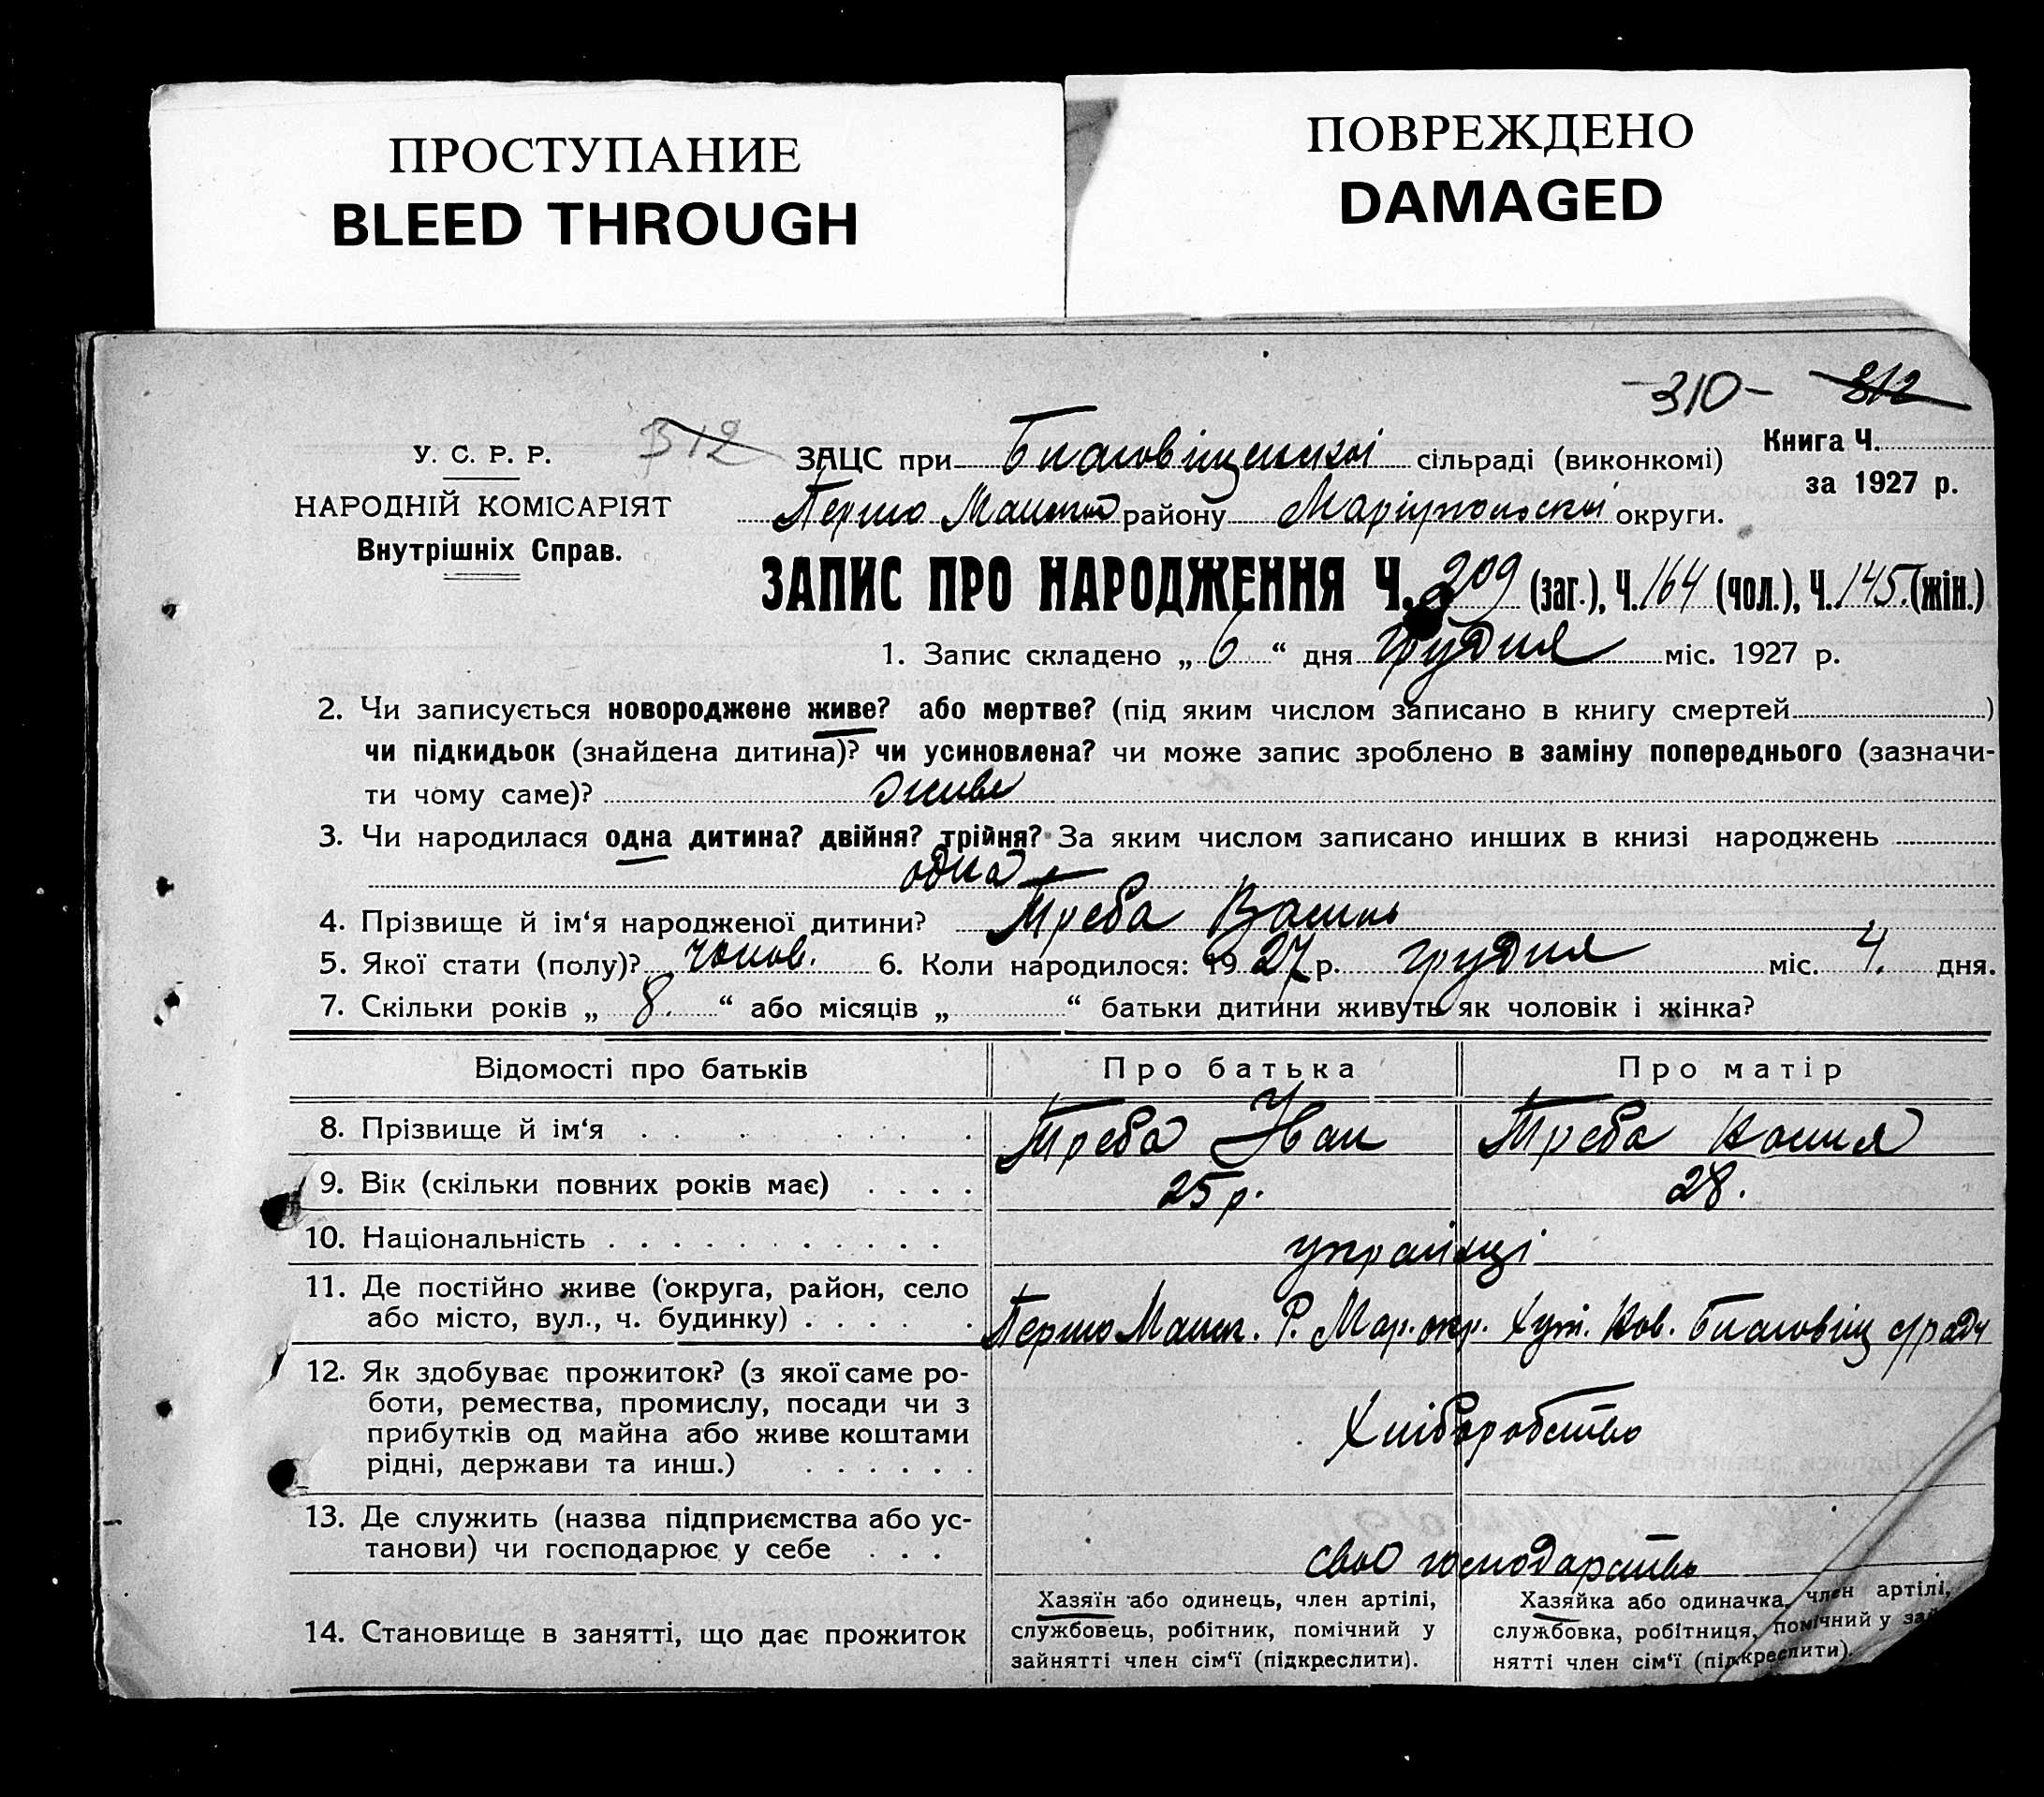 ПРОСТУПАНИЕ
BLEED THROUGH
ПОВРЕЖДЕНО
DAMAGED
-310- 312
У. С. Р. Р.
НАРОДНІЙ КОМІСАРІЯТ
Внутрішніх Справ.
312
ЗАЦС при Благовіщенській сільраді (виконкомі)
Книга Ч.
за 1927 р.
Першо Манськ району Маріупольскої округи.
ЗАПИС ПРО НАРОДЖЕННЯ Ч. 209 (заг.), Ч. 164 (чол.), Ч. 145. (жін.)
1. Запис складено „ 6 “ дня грудня міс. 1927 р.
2. Чи записується новороджене живе? або мертве? (під яким числом записано в книгу смертей )
чи підкидьок (знайдена дитина)? чи усиновлена? чи може запис зроблено в заміну попереднього (зазначи-
ти чому саме)? живе
3. Чи народилася одна дитина? двійня? трійня? За яким числом записано инших в книзі народжень
одна
4. Прізвище й ім‘я народженої дитини? Треба Василь
5. Якої стати (полу)? чолов. 6. Коли народилося: 1927 р. грудня міс. 4. дня.
7. Скільки років „ 8. “ або місяців „ “ батьки дитини живуть як чоловік і жінка?
Відомості про батьків Про батька Про матір
8. Прізвище й ім‘я . . . . . . . . Треба Іван Треба
9. Вік (скільки повних років має) . . . . 25 р. 28.
10. Національність . . . . . . . . . . . українці
11. Де постійно живе (округа, район, село
або місто, вул., ч. будинку) . . . . . . Першо Манск. Р. Мар. окр. Хут. Благовіщ с/ради
12. Як здобуває прожиток? (з якої саме ро-
боти, ремества, промислу, посади чи з
прибутків од майна або живе коштами
рідні, держави та инш.) . . . . . .
Хліборобство
13. Де служить (назва підприємства або ус-
танови) чи господарює у себе . . .
своє господарство
14. Становище в занятті, що дає прожиток
Хазяїн або одинець, член артілі,
службовець, робітник, помічний у
зайнятті член сім‘ї (підкреслити).
Хазяйка або одиначка, член артілі,
службовка, робітниця, помічний у зай
нятті член сім‘ї (підкреслити).